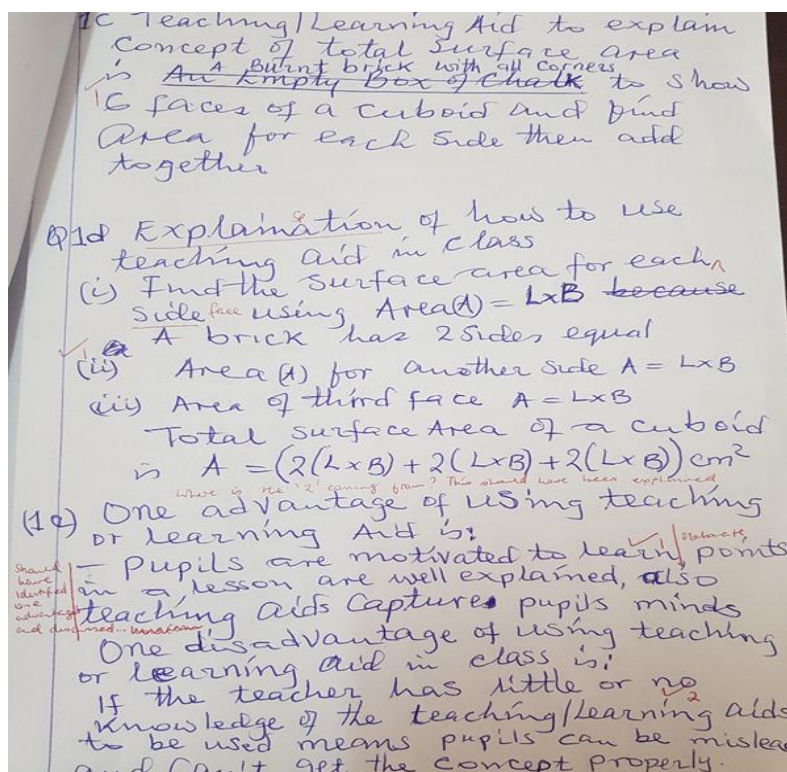 1c Teaching/Learning Aid to explain
concept of total surface area
A Burnt brick with all corners
is An Empty Box of Chalk to show
1
6 faces of a cuboid and find
Area for each side then add
together
Q1d Explaination of how to use
teaching aid in class
(i) Find the surface area for each
side face using Area(A) = LxB because
A brick has 2 sides equal
(ii) Area (A) for another side A = LxB
(iii) Area of third face A = LxB
Total surface Area of a cuboid
is A = (2(LxB) + 2(LxB) + 2(LxB)) cm²
where is the '2' coming from? This should have been explained
(1e) One advantage of using teaching
or learning Aid is:
- Pupils are motivated to learn, points
1 elaborate
in a lesson are well explained, also
teaching aids capture pupils minds
should
have
identified
one
advantage
and discussed...
One disadvantage of using teaching
or learning aid in class is:
If the teacher has little or no
2
knowledge of the teaching/learning aids
to be used means pupils can be mislea
and can't get the concept properly.